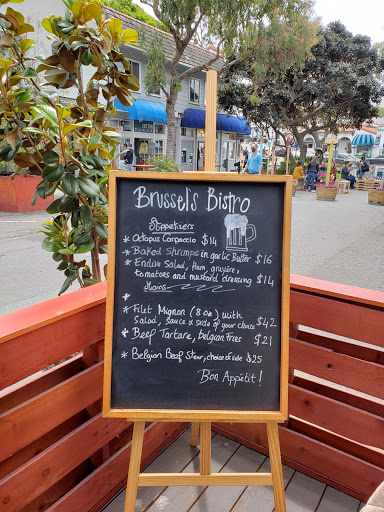 Brussel's Bistro
Appetizers
* Octopus Carpaccio $14
* Baked Shrimps in garlic Butter $16
* Endive Salad, Ham, gruyère,
tomatoes and mustard dressing $14
Mains
* Filet Mignon (8oz) with
Salad, sauce & side of your choice $42
* Beef Tartare, belgian Fries $21
* Belgian Beef Stew, choice of side $25
Bon Appétit!